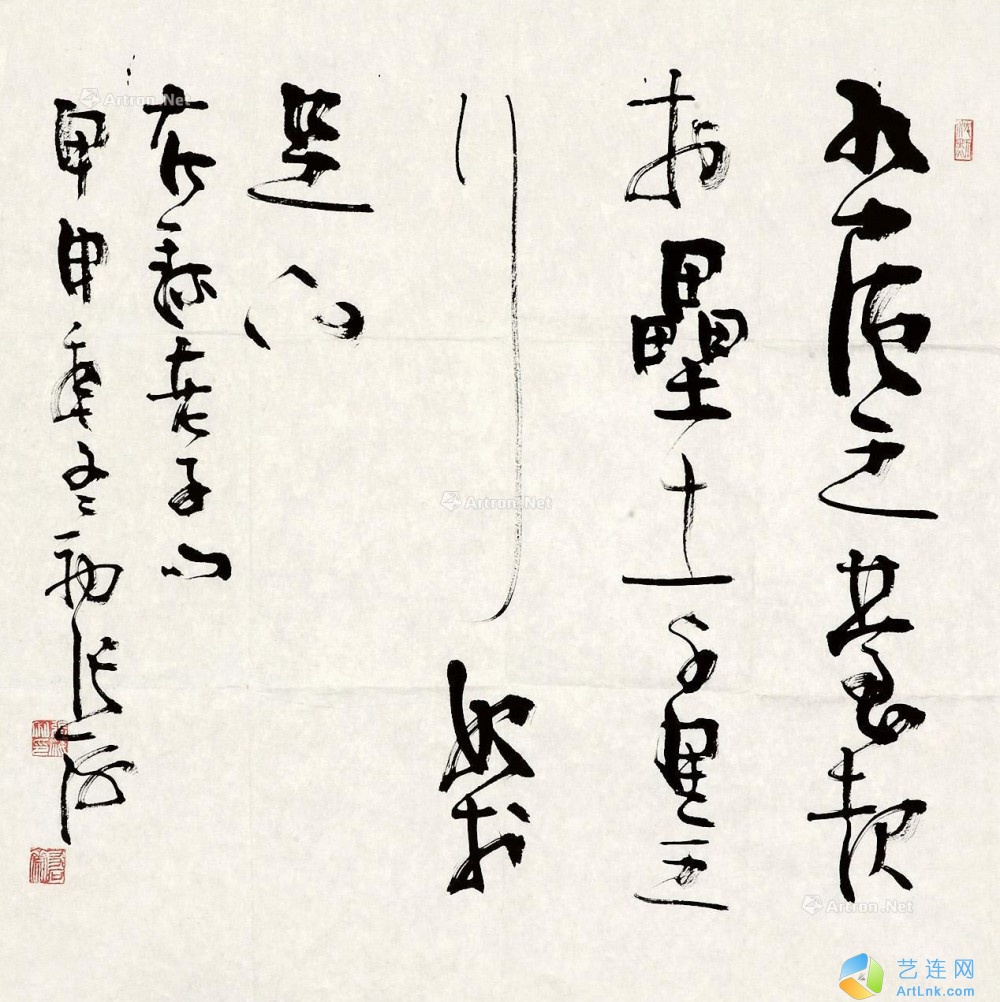 九层之台起
于垒土千里之
行始于
足下
右录老子句
甲申年冬初张旭
Artron.Net
Artron.Net
Artron.Net
艺连网
ArtLnk.com